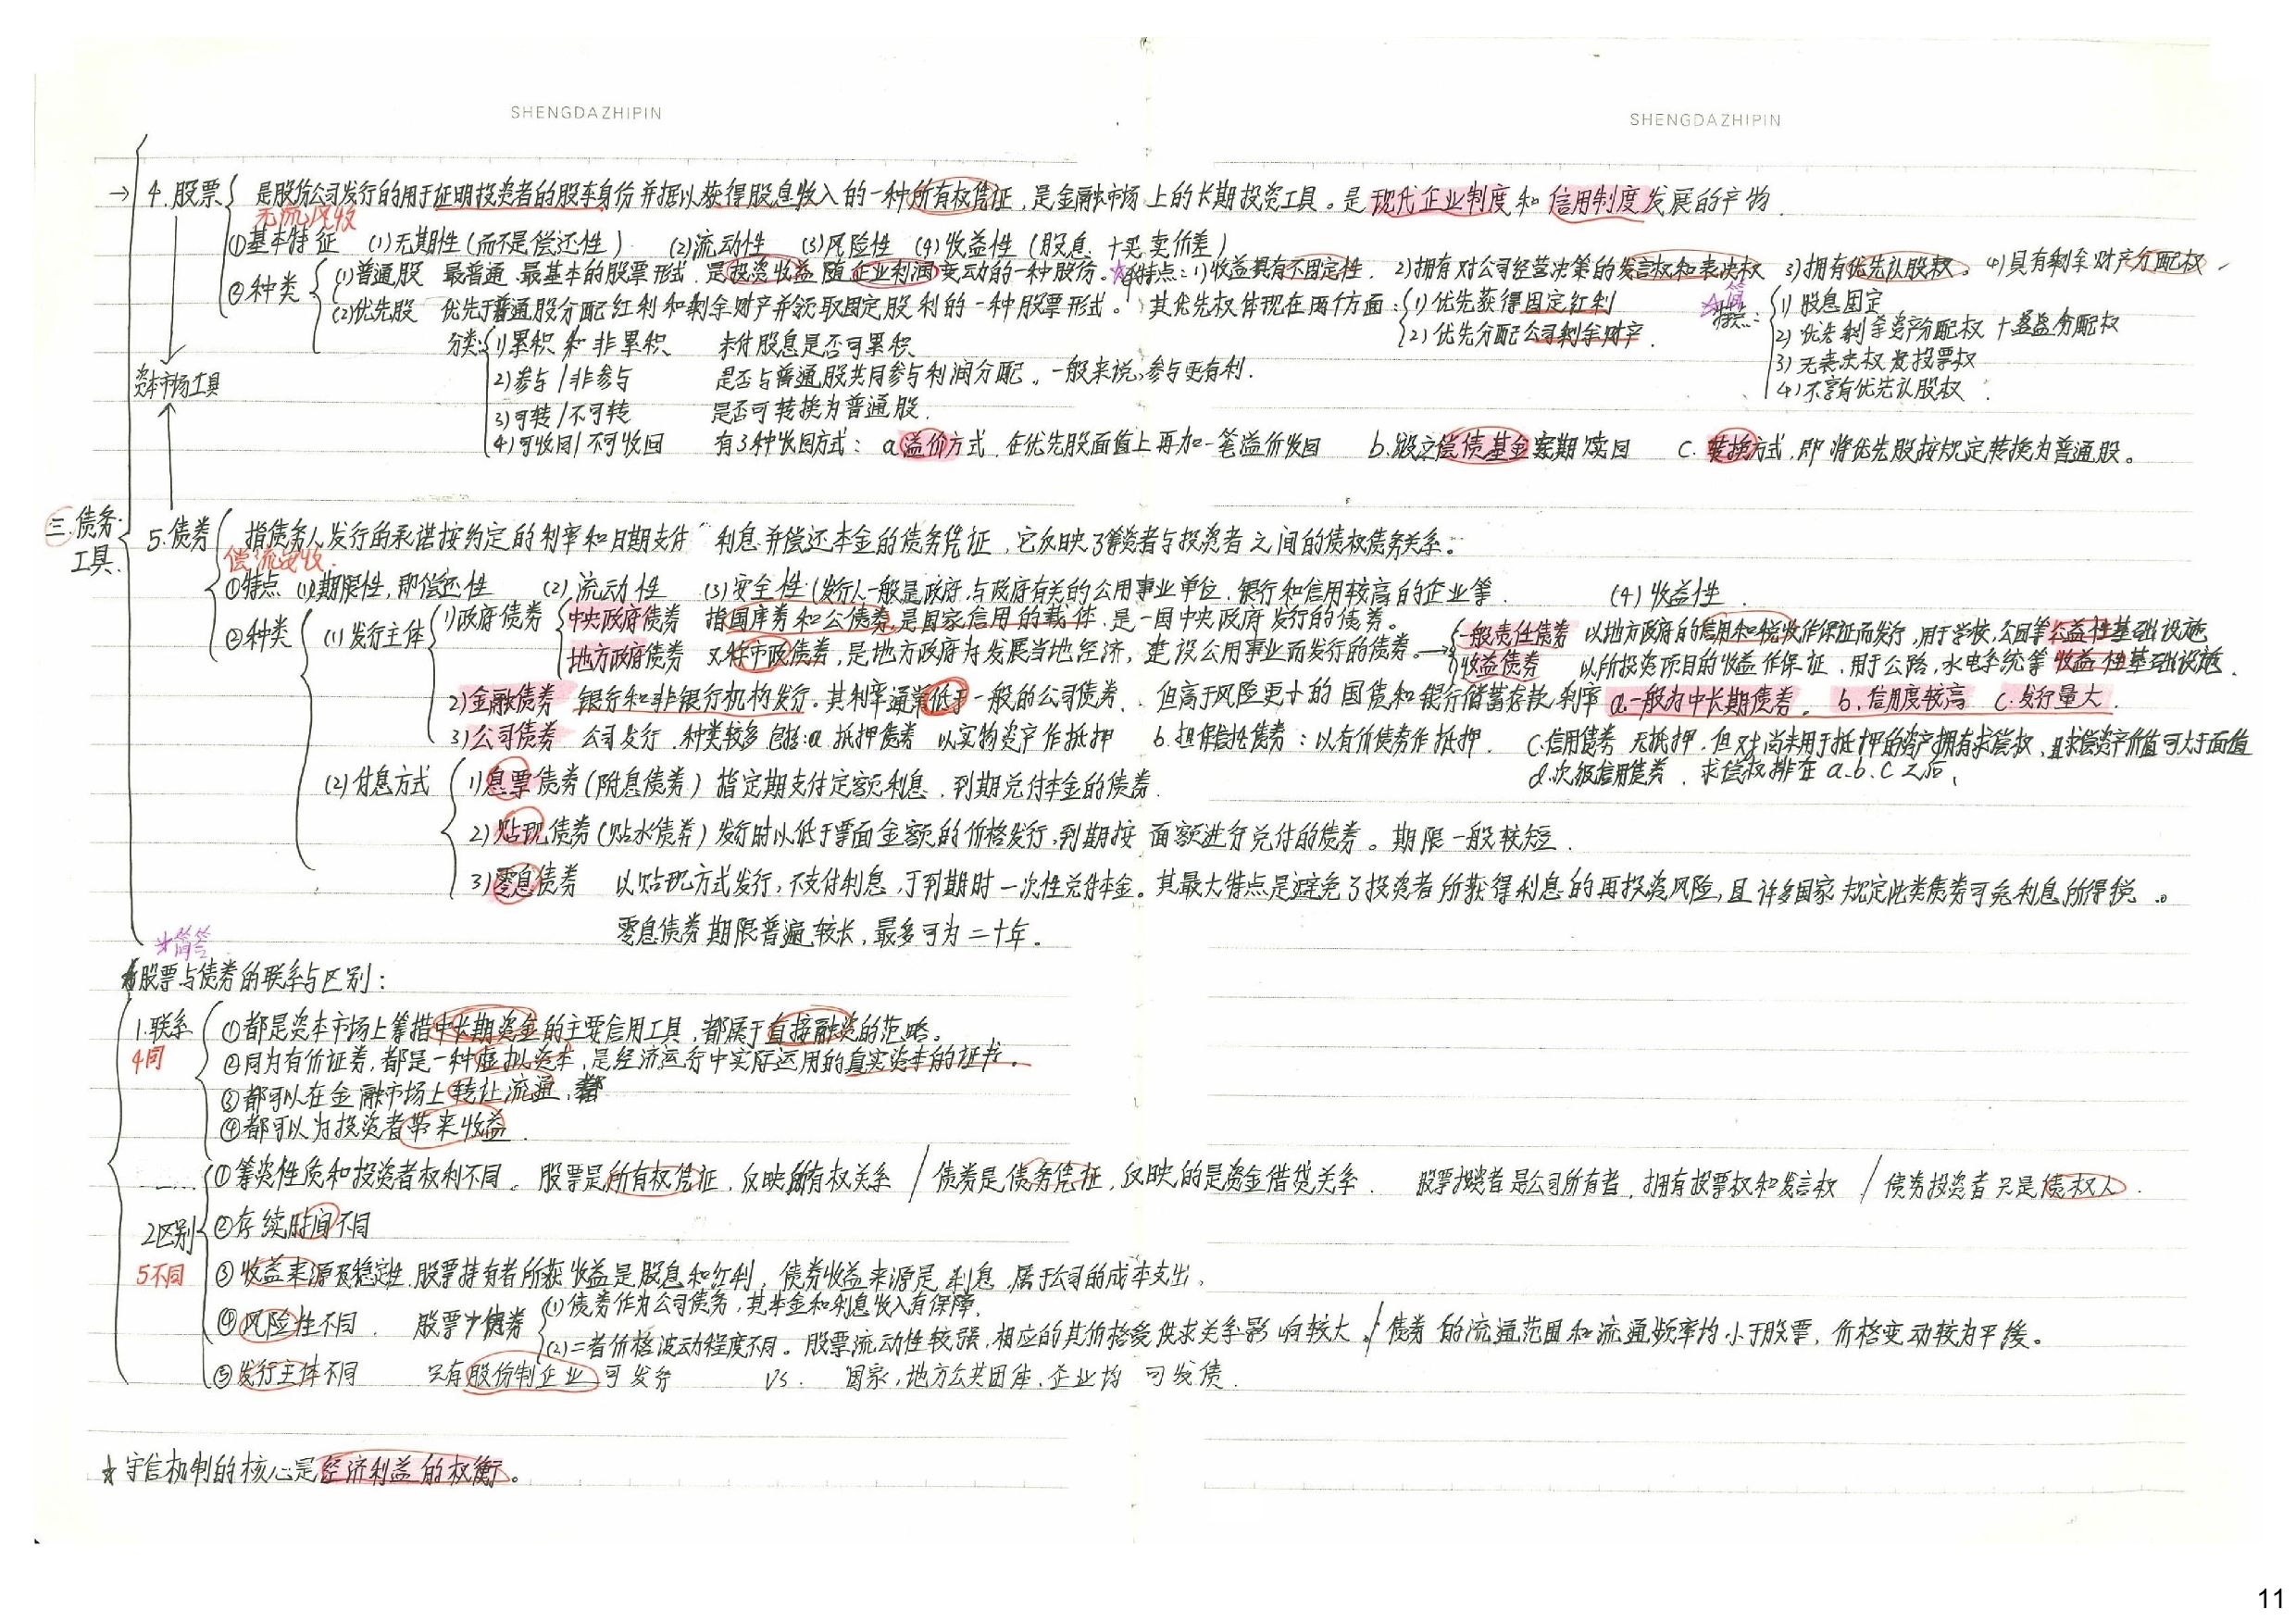 SHENGDAZHIPIN
SHENGDAZHIPIN
→ 4.股票 是股份公司发行的用于证明投资者的股东身份并据以获得股息收入的一种所有权凭证，是金融市场上的长期投资工具。是现代企业制度和信用制度发展的产物.
无流风收
①基本特征 (1)无期性(而不是偿还性) (2)流动性 (3)风险性 (4)收益性 (股息 + 买卖价差)
②种类 (1)普通股 最普通、最基本的股票形式，是投资收益随企业利润变动的一种股份。☆特点：1)收益具有不固定性. 2)拥有对公司经营决策的发言权和表决权 3)拥有优先认股权。4)具有剩余财产分配权
(2)优先股 优先于普通股分配红利和剩余财产并领取固定股利的一种股票形式。其优先权体现在两个方面：(1)优先获得固定红利
(2)优先分配公司剩余财产.
☆简 特点： 1)股息固定
2)优先剩余资产分配权 + 盈益分配权
3)无表决权 发投票权
4)不享有优先认股权.
分类 1)累积和非累积 未付股息是否可累积
2)参与/非参与 是否与普通股共同参与利润分配。一般来说，参与更有利.
3)可转/不可转 是否可转换为普通股.
4)可收回/不可收回 有3种收回方式： a.溢价方式，在优先股面值上再加一笔溢价收回 b.设立偿债基金定期赎回 c.转换方式，即将优先股按规定转换为普通股。
资本市场工具
三.债务工具.
5.债券 指债务人发行的承诺按约定的利率和日期支付利息并偿还本金的债务凭证，它反映了筹资者与投资者之间的债权债务关系。
偿流安收.
①特点 (1)期限性，即偿还性 (2)流动性 (3)安全性(发行人一般是政府、与政府有关的公用事业单位、银行和信用较高的企业等. (4)收益性.
②种类 (1)发行主体 1)政府债券 中央政府债券 指国库券和公债券，是国家信用的载体，是一国中央政府发行的债券。
地方政府债券 又称市政债券，是地方政府为发展当地经济，建设公用事业而发行的债券。→
一般责任债券 以地方政府的信用和税收作保证而发行，用于学校、公园等公益性基础设施
收益债券 以所投资项目的收益作保证，用于公路，水电系统等收益性基础设施.
2)金融债券 银行和非银行机构发行。其利率通常低于一般的公司债券，但高于风险更小的国债和银行储蓄存款利率 a.一般为中长期债券。b.信用度较高 c.发行量大.
3)公司债券 公司发行，种类较多 包括：a.抵押债券 以实物资产作抵押 b.担保信托债券：以有价债券作抵押. c.信用债券 无抵押，但对尚未用于抵押的资产拥有求偿权，且求偿资产价值可大于面值
d.次级信用债券. 求偿权排在a.b.c之后.
(2)付息方式 1)息票债券(附息债券) 指定期支付定额利息，到期兑付本金的债券.
2)贴现债券(贴水债券) 发行时以低于票面金额的价格发行，到期按面额进行兑付的债券。期限一般较短.
3)零息债券 以贴现方式发行，不支付利息，于到期时一次性兑付本金。其最大特点是避免了投资者所获得利息的再投资风险，且许多国家规定此类债券可免利息所得税。
零息债券期限普遍较长，最多可为二十年。
☆简答
股票与债券的联系与区别：
1.联系 ①都是资本市场上筹措中长期资金的主要信用工具，都属于直接融资的范畴。
4同 ②同为有价证券，都是一种虚拟资本，是经济运行中实际运用的真实资本的证书。
③都可以在金融市场上转让流通.
④都可以为投资者带来收益.
①筹资性质和投资者权利不同。股票是所有权凭证，反映所有权关系 / 债券是债务凭证，反映的是资金借贷关系. 股票投资者是公司所有者，拥有投票权和发言权 / 债券投资者只是债权人.
2区别 ②存续时间不同
5不同 ③收益来源及稳定性 股票持有者所获收益是股息和红利，债券收益来源是利息，属于公司的成本支出.
④风险性不同. 股票＞债券 (1)债券作为公司债务，其本金和利息收入有保障.
(2)二者价格波动程度不同。股票流动性较强，相应的其价格受供求关系影响较大 / 债券的流通范围和流通频率均小于股票，价格变动较为平缓。
⑤发行主体不同 只有股份制企业可发券 VS. 国家，地方公共团体，企业均可发债.
☆守信机制的核心是经济利益的权衡。
11